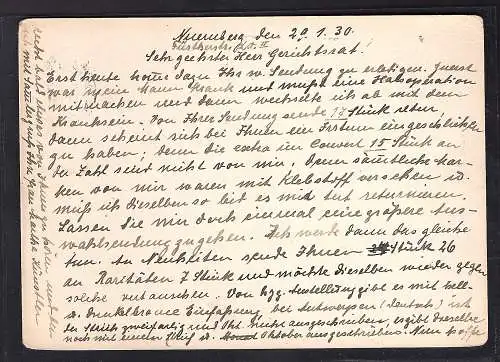 Nuernberg den 29.1.30.
Fürtherstr.
Sehr geehrter Herr Gerichtsrat!
Erst heute komme dazu Ihre w. Sendung zu erledigen. Zuerst
war mein Mann krank und mußte eine Halsoperation
mitmachen und dann wechselte ich ab mit dem
Kranksein. Von Ihrer Sendung sende 15 Stück retur
dann scheint sich bei Ihnen ein Irrtum eingeschlichen
zu haben; denn die extra im Couvert 15 Stück an
der Zahl sind nicht von mir. Denn sämtliche Mar-
ken von mir waren mit Klebstoff versehen u.
muß ich dieselben so leid es mir tut returnieren.
Lassen Sie mir doch einmal eine größere Aus-
wahlsendung zugehen. Ich werde dann das gleiche
tun. An Neuheiten sende Ihnen Stück 26
an Raritäten 7 Stück und möchte dieselben wieder gegen
solche vertauschen. Von Ausstellung gibt es mit hell-
u. Dunkelbrauner Einfassung, bei Antwerpen
der Strich zweifarbig und Okt. nicht ausgeschrieben, es gibt dieselbe
noch mit einem Strich u. Oktober ausgeschrieben. Nun hoffe
recht bald etwas von Ihnen zu hören und bin
mit Sammlergruß Ihre Frau